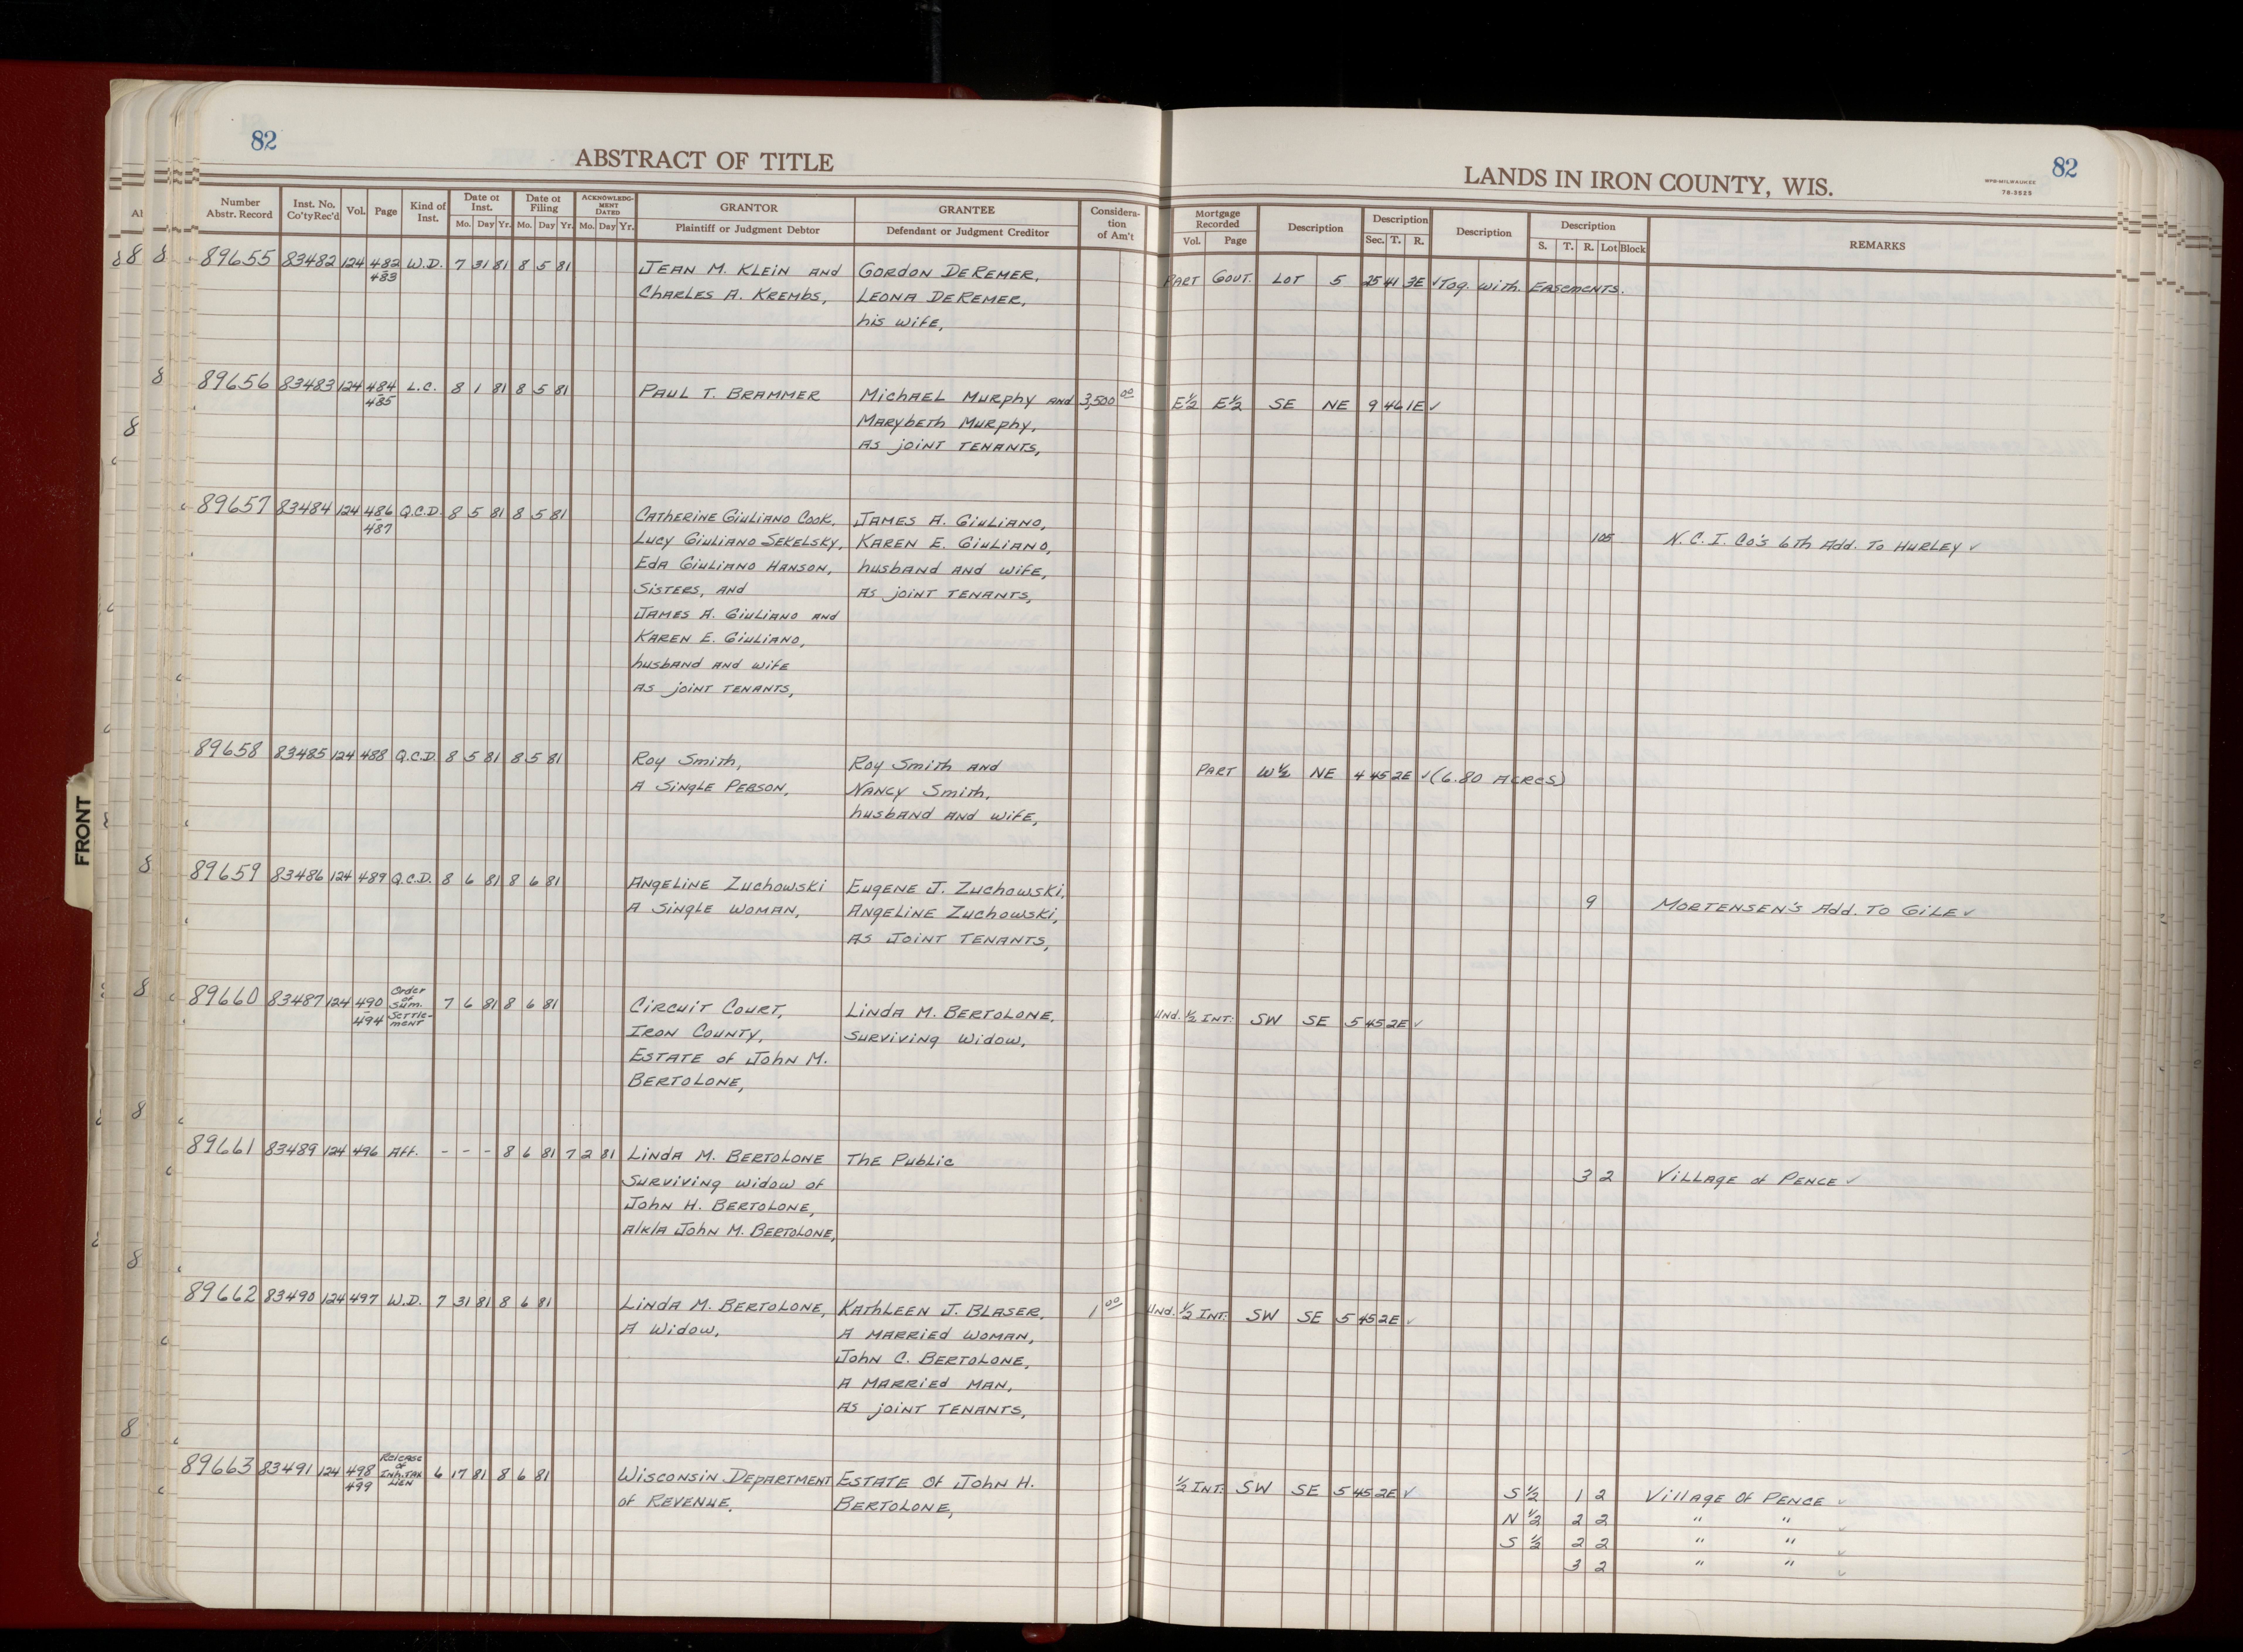 82
ABSTRACT OF TITLE
LANDS IN IRON COUNTY, WIS.
WPB-MILWAUKEE
78-3525
82
Number Abstr. Record Inst. No. Co'ty Rec'd Vol. Page Kind of Inst. Date of Inst. Mo. Day Yr. Date of Filing Mo. Day Yr. ACKNOWLEDGMENT DATED Mo. Day Yr. GRANTOR Plaintiff or Judgment Debtor GRANTEE Defendant or Judgment Creditor Consideration of Am't Mortgage Recorded Vol. Page Description Description Sec. T. R. Description Description S. T. R. Lot Block REMARKS
89655 83482 124 482-483 W.D. 7 31 81 8 5 81 Jean M. Klein and Gordon DeRemer, Part Gout. Lot 5 25 41 3E ✓ Tog. with. Easements.
Charles A. Krembs, Leona DeRemer,
his wife,
89656 83483 124 484-485 L.C. 8 1 81 8 5 81 Paul T. Brammer Michael Murphy and 3,500 00 E½ E½ SE NE 9 46 1E ✓
Marybeth Murphy,
As joint tenants,
89657 83484 124 486-487 Q.C.D. 8 5 81 8 5 81 Catherine Giuliano Cook, James A. Giuliano,
Lucy Giuliano Sekelsky, Karen E. Giuliano, 105 N.C.I. Co's 6th Add. To Hurley ✓
Eda Giuliano Hanson, husband and wife,
Sisters, and As joint tenants,
James A. Giuliano and
Karen E. Giuliano,
husband and wife
As joint tenants,
89658 83485 124 488 Q.C.D. 8 5 81 8 5 81 Roy Smith, Roy Smith and Part W½ NE 4 45 2E ✓ (6.80 Acres)
A Single Person, Nancy Smith,
husband and wife,
89659 83486 124 489 Q.C.D. 8 6 81 8 6 81 Angeline Zuchowski Eugene J. Zuchowski,
A Single Woman, Angeline Zuchowski, 9 Mortensen's Add. To Gile ✓
As Joint Tenants,
89660 83487 124 490-494 Order of Sum. Settle-ment 7 6 81 8 6 81 Circuit Court, Linda M. Bertolone, Und. ½ Int. SW SE 5 45 2E ✓
Iron County, Surviving Widow,
Estate of John M.
Bertolone,
89661 83489 124 496 Aff. - - - 8 6 81 7 2 81 Linda M. Bertolone The Public
Surviving widow of 3 2 Village of Pence ✓
John H. Bertolone,
A/k/a John M. Bertolone,
89662 83490 124 497 W.D. 7 31 81 8 6 81 Linda M. Bertolone, Kathleen J. Blaser, 1 00 Und. ½ Int. SW SE 5 45 2E ✓
A Widow, A Married Woman,
John C. Bertolone,
A Married Man,
As joint tenants,
89663 83491 124 498-499 Release of Inh. Tax Lien 6 17 81 8 6 81 Wisconsin Department Estate of John H. ½ Int. SW SE 5 45 2E ✓ S ½ 1 2 Village Of Pence ✓
of Revenue, Bertolone, N ½ 2 2 " " ✓
S ½ 2 2 " " ✓
3 2 " " ✓
FRONT